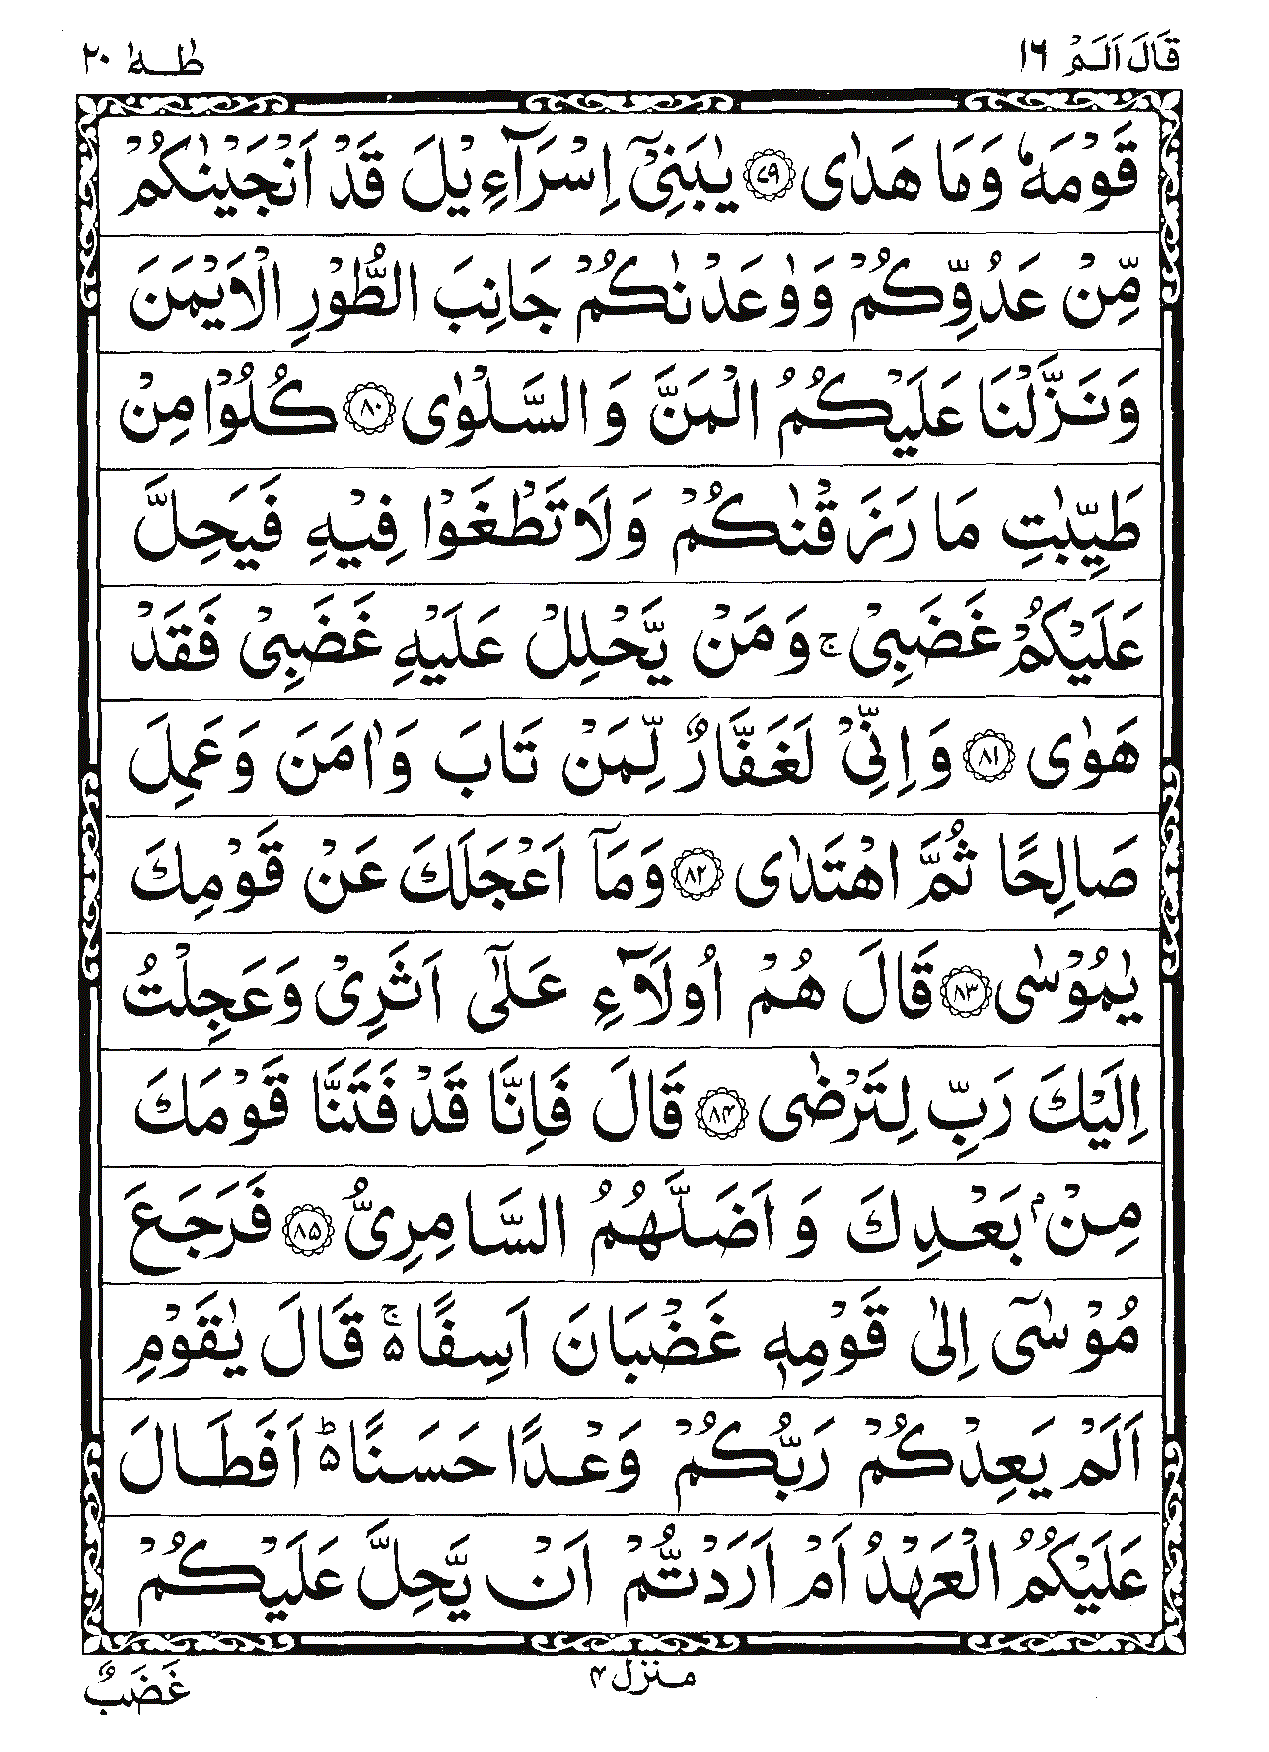 قَالَ اَلَمْ ١٦ طٰهٰ ٢٠
قَوْمَهٗ وَمَا هَدٰى ﴿٧٩﴾ يٰبَنِيْٓ اِسْرَآءِيْلَ قَدْ اَنْجَيْنٰكُمْ
مِّنْ عَدُوِّكُمْ وَوٰعَدْنٰكُمْ جَانِبَ الطُّوْرِ الْاَيْمَنَ
وَنَزَّلْنَا عَلَيْكُمُ الْمَنَّ وَالسَّلْوٰى ﴿٨٠﴾ كُلُوْا مِنْ
طَيِّبٰتِ مَا رَزَقْنٰكُمْ وَلَا تَطْغَوْا فِيْهِ فَيَحِلَّ
عَلَيْكُمْ غَضَبِيْ ۚ وَمَنْ يَّحْلِلْ عَلَيْهِ غَضَبِيْ فَقَدْ
هَوٰى ﴿٨١﴾ وَاِنِّيْ لَغَفَّارٌ لِّمَنْ تَابَ وَاٰمَنَ وَعَمِلَ
صَالِحًا ثُمَّ اهْتَدٰى ﴿٨٢﴾ وَمَآ اَعْجَلَكَ عَنْ قَوْمِكَ
يٰمُوْسٰى ﴿٨٣﴾ قَالَ هُمْ اُولَآءِ عَلٰٓى اَثَرِيْ وَعَجِلْتُ
اِلَيْكَ رَبِّ لِتَرْضٰى ﴿٨٤﴾ قَالَ فَاِنَّا قَدْ فَتَنَّا قَوْمَكَ
مِنْۢ بَعْدِكَ وَاَضَلَّهُمُ السَّامِرِيُّ ﴿٨٥﴾ فَرَجَعَ
مُوْسٰٓى اِلٰى قَوْمِهٖ غَضْبَانَ اَسِفًا ۵ۚ قَالَ يٰقَوْمِ
اَلَمْ يَعِدْكُمْ رَبُّكُمْ وَعْدًا حَسَنًا ۵ؕ اَفَطَالَ
عَلَيْكُمُ الْعَهْدُ اَمْ اَرَدْتُّمْ اَنْ يَّحِلَّ عَلَيْكُمْ
منزل ۴
غَضَبٌ